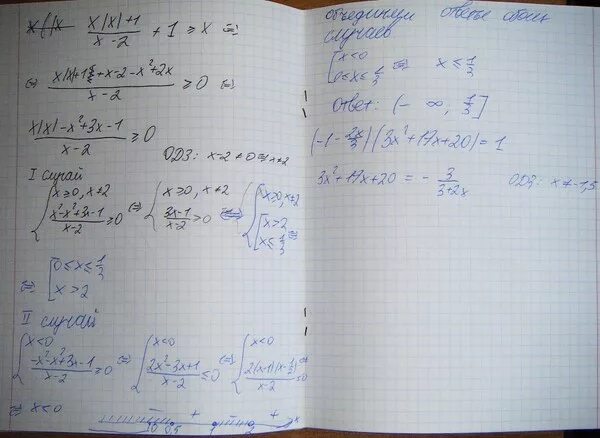 x|x|+1 / x-2 + 1 ≥ x ⇔
⇔ x|x|+1+x-2-x²+2x / x-2 ≥ 0 ⇔
x|x|-x²+3x-1 / x-2 ≥ 0
ОДЗ: x-2≠0 ⇒ x≠2
I случай
{ x≥0, x≠2; x²-x²+3x-1 / x-2 ≥ 0 ⇔ { x≥0, x≠2; 3x-1 / x-2 ≥ 0 ⇔ { x≥0, x≠2; [ x>2; x≤1/3 ⇔
⇔ [ 0≤x≤1/3; x>2
II случай
{ x<0; -x²-x²+3x-1 / x-2 ≥ 0 ⇔ { x<0; 2x²-3x+1 / x-2 ≤ 0 ⇔ { x<0; 2(x-1)(x-1/2) / x-2 ≤ 0
⇔ x<0
- + - + x
объединяем ответы обоих
случаев
[ x<0; 0≤x≤1/3 ⇔ x≤1/3
Ответ: (-∞, 1/3]
(-1-2x/3)(3x²+17x+20)=1
3x²+17x+20 = -3/3+2x ОДЗ: x≠-1,5